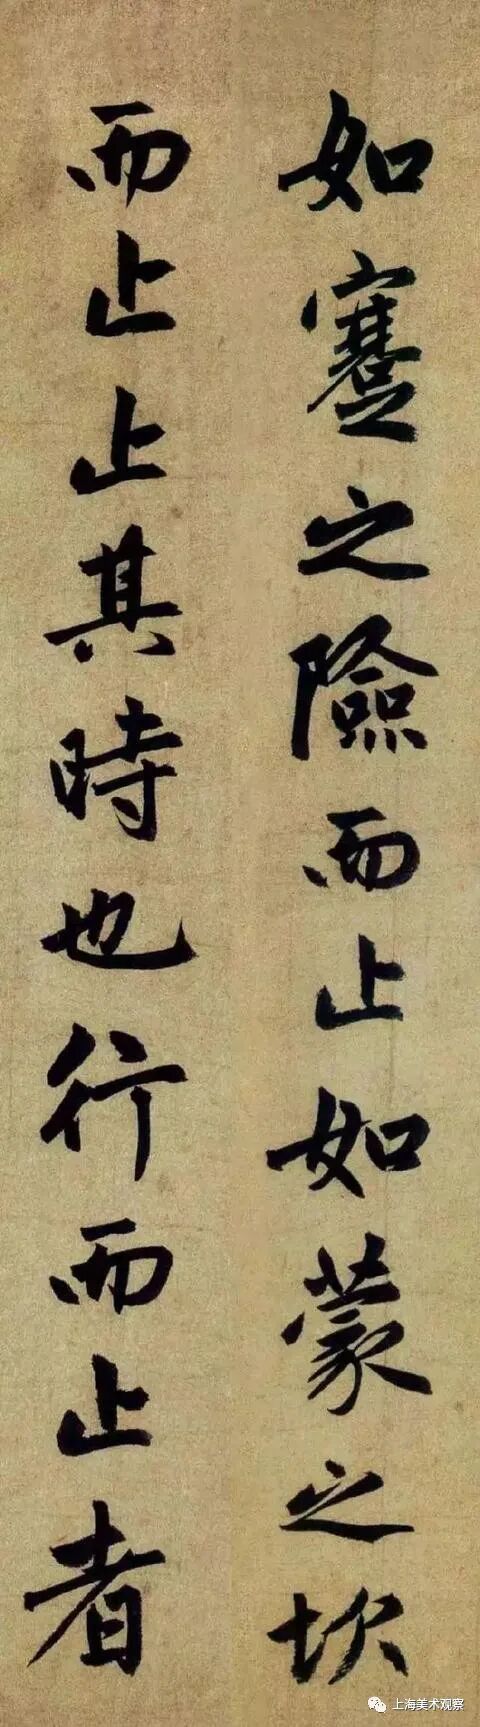 如蹇之險而止如蒙之坎
而止止其時也行而止者
上海美术观察